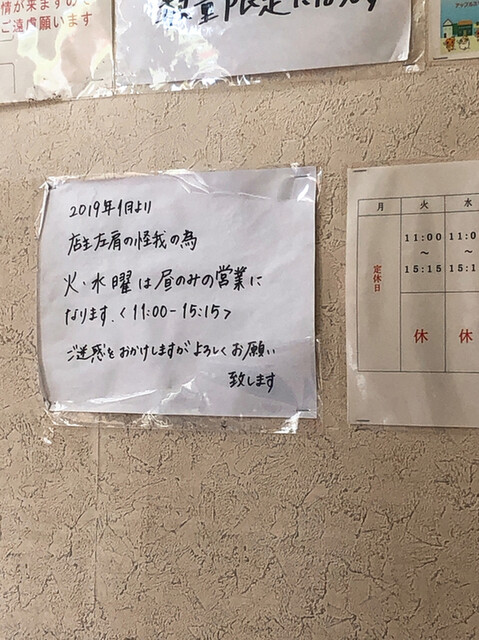 情が来ますので
ご遠慮願います
数量限定になります
2019年1月より
店主左肩の怪我の為
火・水曜は昼のみの営業に
なります.<11:00-15:15>
ご迷惑をおかけしますがよろしくお願い
致します
月 火 水
定休日
11:00
~
15:15
休 休